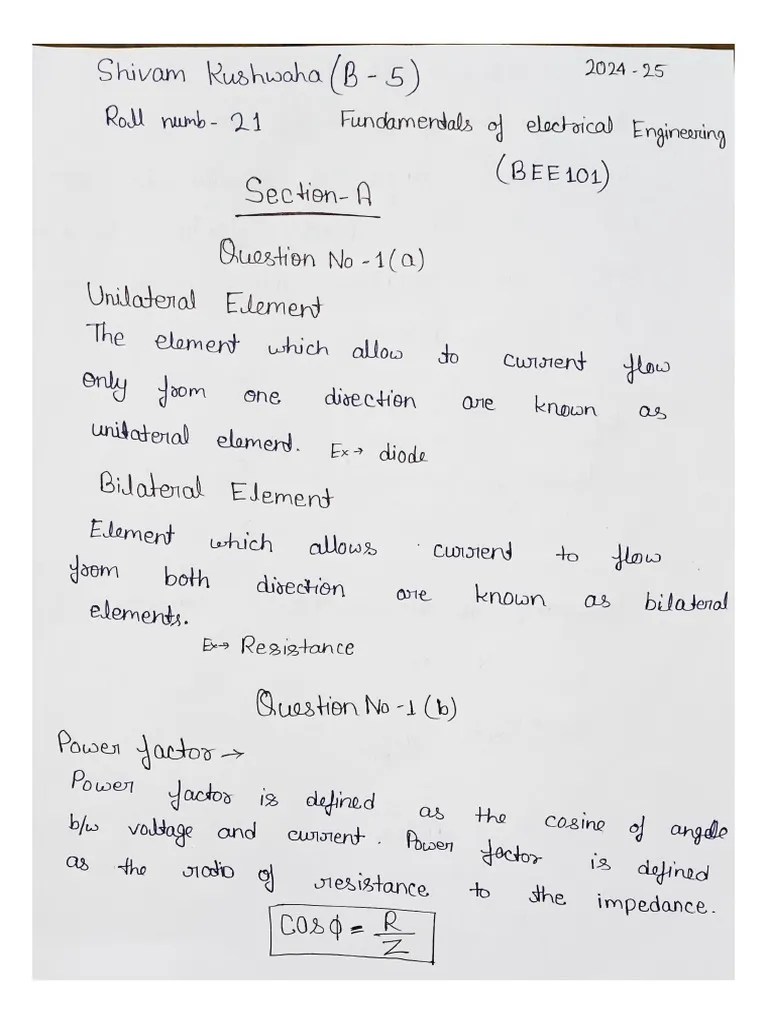 Shivam Kushwaha (B - 5) 2024 - 25
Roll numb - 21 Fundamendals of electrical Engineering
(BEE101)
Section - A
Question No - 1(a)
Unilateral Element
The element which allow to current flow
only from one direction are known as
unilateral element. Ex → diode
Bilateral Element
Element which allows current to flow
from both direction are known as bilateral
elements.
Ex → Resistance
Question No - 1 (b)
Power factor →
Power factor is defined as the cosine of angle
b/w voltage and current. Power factor is defined
as the ratio of resistance to the impedance.
COSϕ = R/Z